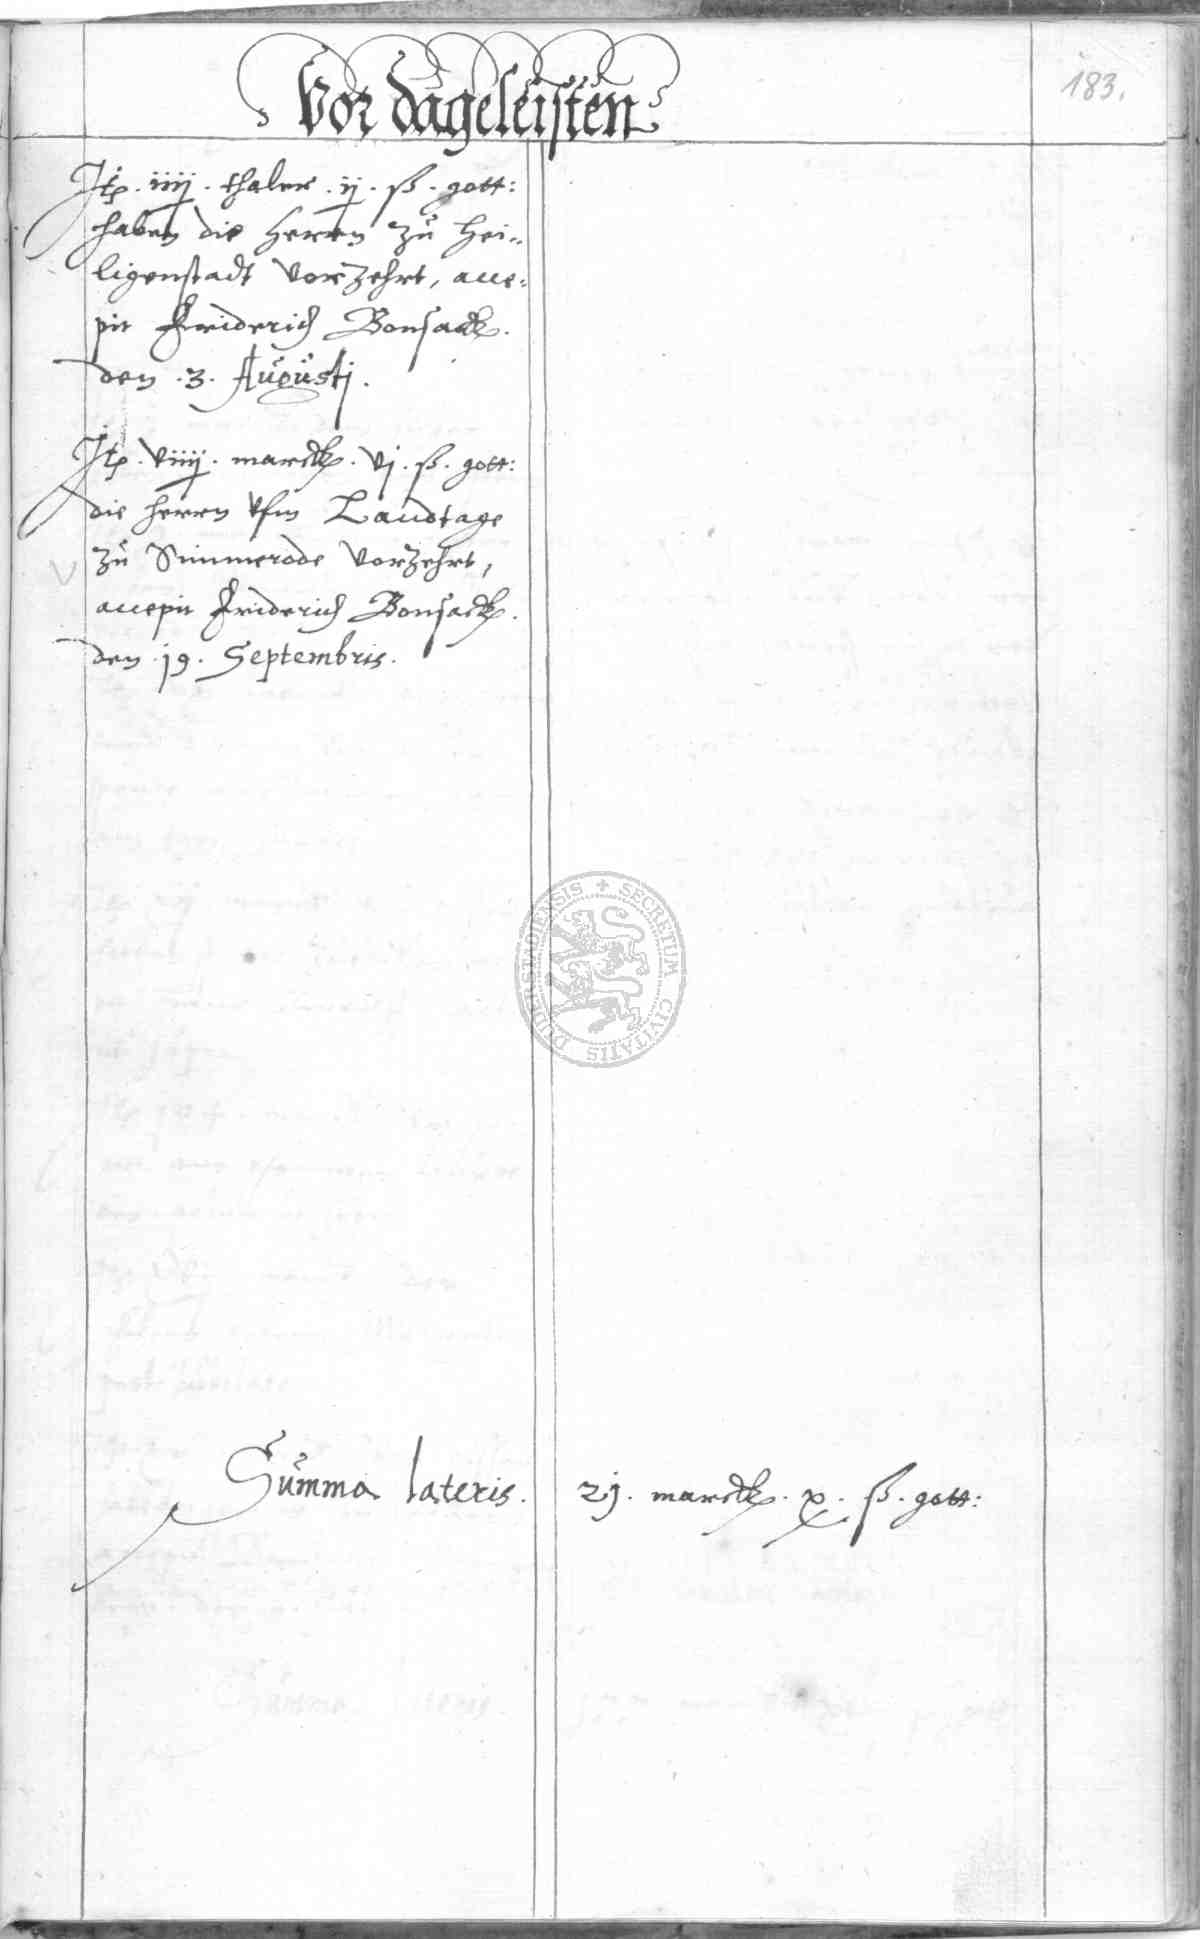 183.
Vor dageleisten
Itp. iiiij. thaler. ij. ß. gott:
haben die Herren zu Hei-
ligenstadt vorzehrt, acce-
pit Friderich Bonsack.
den .3. Augustj.
Itp. viiij. marck. vj. ß. gott:
die herrn vfm Landtage
zu Simmerode vorzehrt,
accepit Friderich Bonsack.
den .19. Septembris.
DUDERSTADIENSIS + SECRETUM CIVITATIS
Summa lateris. 2j. marck. x. ß. gott: